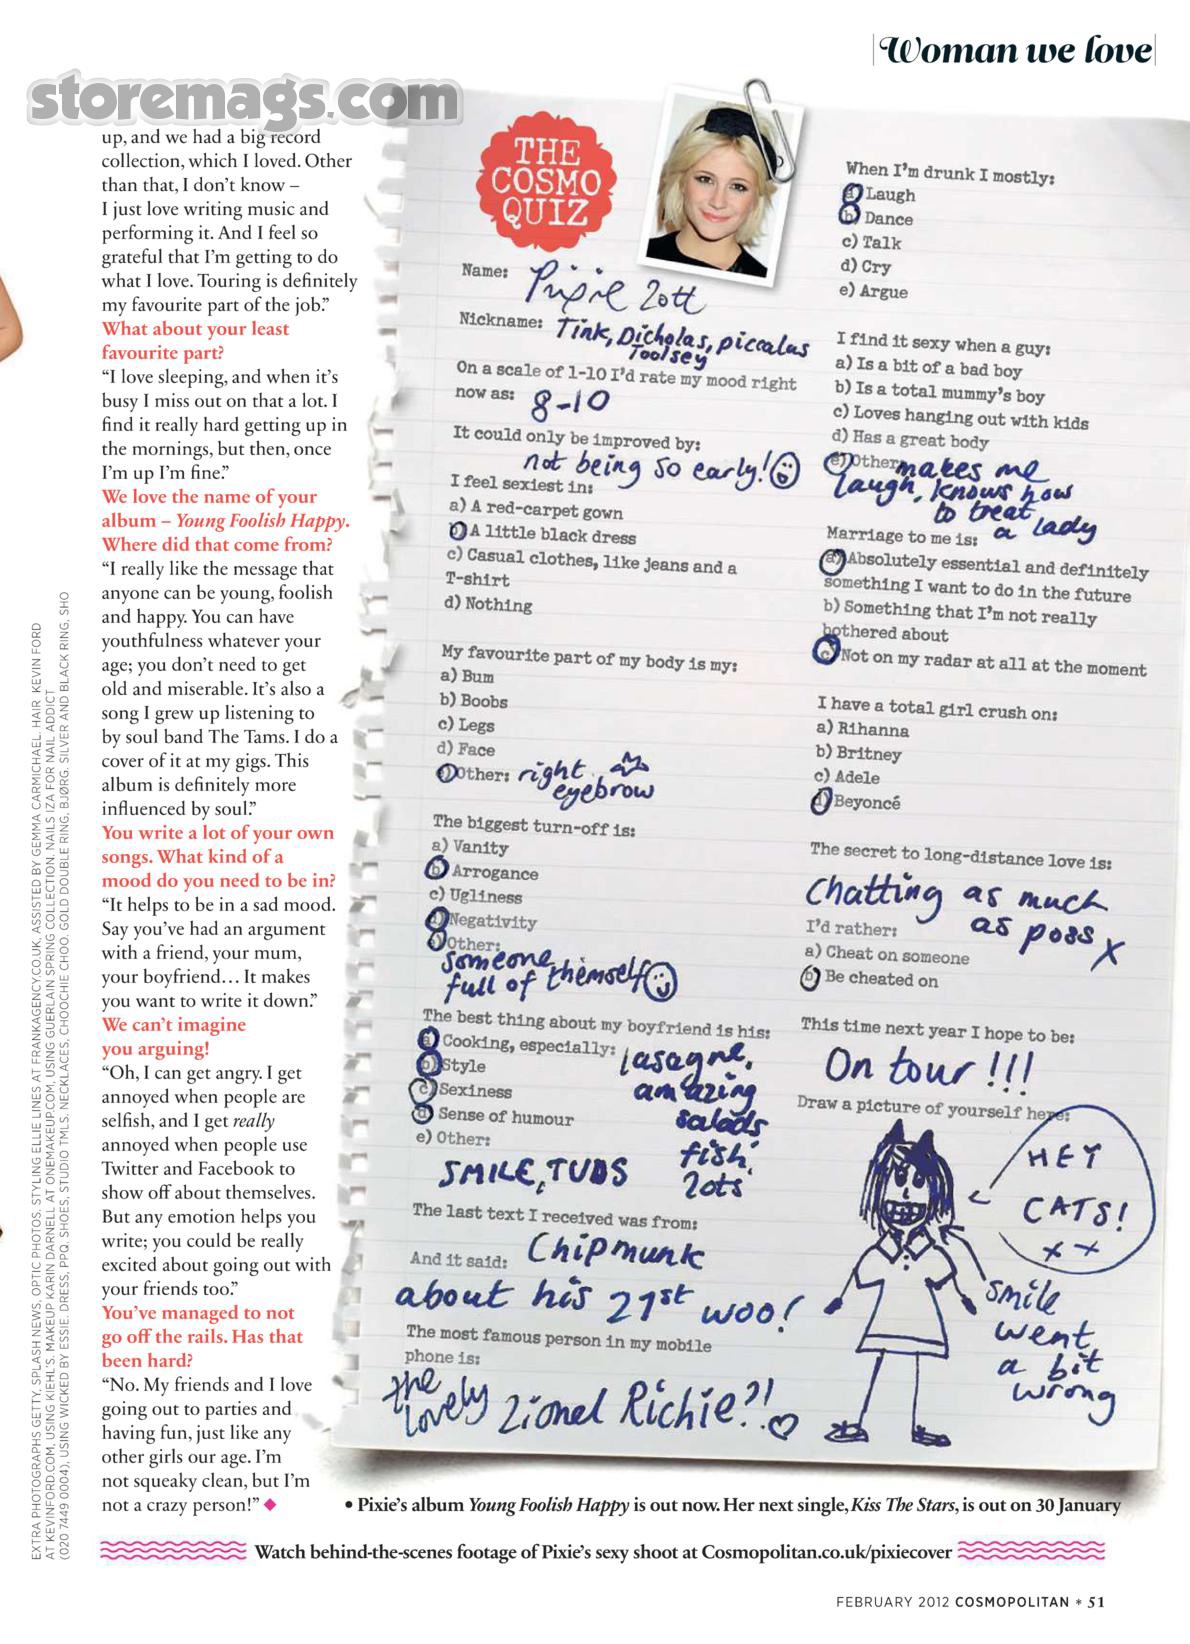 Woman we love
storemags.com
up, and we had a big record
collection, which I loved. Other
than that, I don't know –
I just love writing music and
performing it. And I feel so
grateful that I'm getting to do
what I love. Touring is definitely
my favourite part of the job."
What about your least
favourite part?
"I love sleeping, and when it's
busy I miss out on that a lot. I
find it really hard getting up in
the mornings, but then, once
I'm up I'm fine."
We love the name of your
album – Young Foolish Happy.
Where did that come from?
"I really like the message that
anyone can be young, foolish
and happy. You can have
youthfulness whatever your
age; you don't need to get
old and miserable. It's also a
song I grew up listening to
by soul band The Tams. I do a
cover of it at my gigs. This
album is definitely more
influenced by soul."
You write a lot of your own
songs. What kind of a
mood do you need to be in?
"It helps to be in a sad mood.
Say you've had an argument
with a friend, your mum,
your boyfriend… It makes
you want to write it down."
We can't imagine
you arguing!
"Oh, I can get angry. I get
annoyed when people are
selfish, and I get really
annoyed when people use
Twitter and Facebook to
show off about themselves.
But any emotion helps you
write; you could be really
excited about going out with
your friends too."
You've managed to not
go off the rails. Has that
been hard?
"No. My friends and I love
going out to parties and
having fun, just like any
other girls our age. I'm
not squeaky clean, but I'm
not a crazy person!" ◆
EXTRA PHOTOGRAPHS GETTY, SPLASH NEWS, OPTIC PHOTOS. STYLING ELLIE LINES AT FRANKAGENCY.CO.UK, ASSISTED BY GEMMA CARMICHAEL. HAIR KEVIN FORD
AT KEVINFORD.COM, USING KIEHL'S. MAKEUP KARIN DARNELL AT ONEMAKEUP.COM, USING GUERLAIN SPRING COLLECTION. NAILS IZA FOR NAIL ADDICT
(020 7449 0004), USING WICKED BY ESSIE. DRESS, PPQ. SHOES, STUDIO TMLS. NECKLACES, CHOOCHIE CHOO. GOLD DOUBLE RING, BJØRG. SILVER AND BLACK RING, SHO
THE
COSMO
QUIZ
Name: Pixie Lott
Nickname: Tink, Dicholas, piccalus
Toolsey
On a scale of 1-10 I'd rate my mood right
now as: 8-10
It could only be improved by:
not being so early!
I feel sexiest in:
a) A red-carpet gown
b) A little black dress
c) Casual clothes, like jeans and a
T-shirt
d) Nothing
My favourite part of my body is my:
a) Bum
b) Boobs
c) Legs
d) Face
e) Other: right
eyebrow
The biggest turn-off is:
a) Vanity
b) Arrogance
c) Ugliness
d) Negativity
e) Other:
someone
full of themself
The best thing about my boyfriend is his:
a) Cooking, especially: lasagne,
b) Style
amazing
c) Sexiness
salads
d) Sense of humour
fish,
e) Other:
lots
SMILE, TUDS
The last text I received was from:
Chipmunk
And it said:
about his 21st woo!
The most famous person in my mobile
phone is:
the lovely Lionel Richie?!
When I'm drunk I mostly:
a) Laugh
b) Dance
c) Talk
d) Cry
e) Argue
I find it sexy when a guy:
a) Is a bit of a bad boy
b) Is a total mummy's boy
c) Loves hanging out with kids
d) Has a great body
e) Other makes me
laugh, knows how
to treat
a lady
Marriage to me is:
a) Absolutely essential and definitely
something I want to do in the future
b) Something that I'm not really
bothered about
c) Not on my radar at all at the moment
I have a total girl crush on:
a) Rihanna
b) Britney
c) Adele
d) Beyoncé
The secret to long-distance love is:
Chatting as much
as poss x
I'd rather:
a) Cheat on someone
b) Be cheated on
This time next year I hope to be:
On tour!!!
Draw a picture of yourself here:
HEY
CATS!
x x
smile
went
a bit
wrong
• Pixie's album Young Foolish Happy is out now. Her next single, Kiss The Stars, is out on 30 January
Watch behind-the-scenes footage of Pixie's sexy shoot at Cosmopolitan.co.uk/pixiecover
FEBRUARY 2012 COSMOPOLITAN * 51